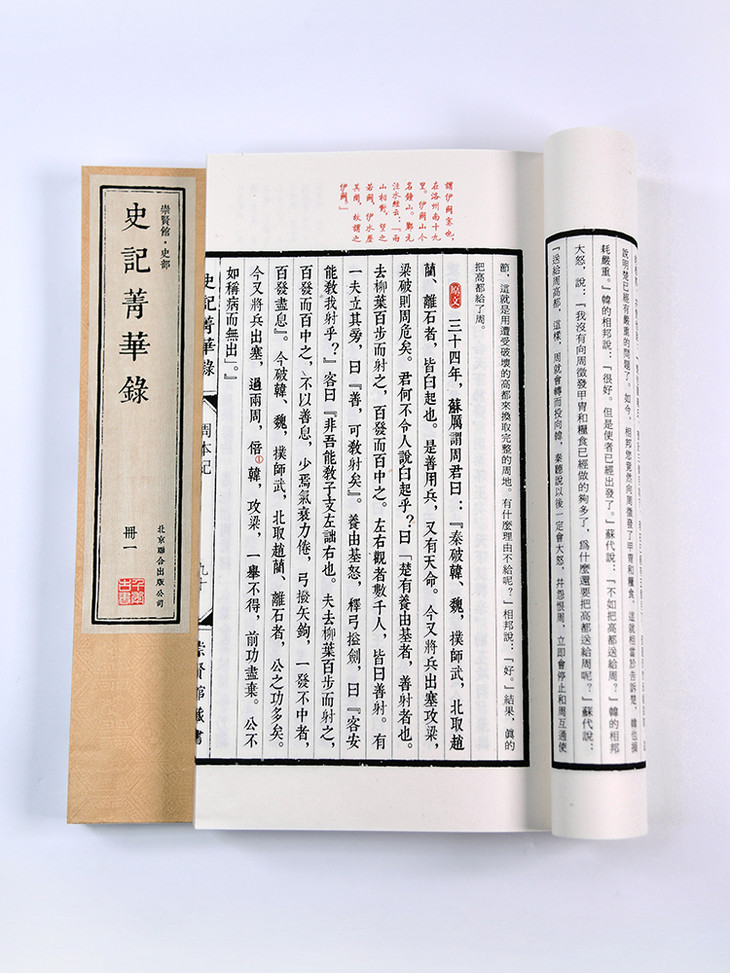 崇賢館·史部
史記菁華錄
冊一
北京聯合出版公司
說明楚已經有嚴重的問題了。如今,相邦您竟然向周徵發了甲冑和糧食,這就相當於告訴楚,韓也損
耗嚴重。」韓的相邦說:「很好。但是使者已經出發了。」蘇代說:「不如把高都送給周?」韓的相邦
大怒,說:「我沒有向周徵發甲冑和糧食已經做的夠多了,爲什麼還要把高都送給周呢?」蘇代說:
「送給周高都,這樣,周就會轉而投向韓,秦聽說以後一定會大怒,并怨恨周,立即會停止和周互通使
節,這就是用遭受破壞的高都來換取完整的周地。有什麼理由不給呢?」相邦說:「好。」結果,眞的
把高都給了周。
謂伊闕塞也,
在洛州南十九
里。伊闕山今
名鍾山。酈元
注水經云:「兩
山相對,望之
若闕,伊水歷
其間,故謂之
伊闕。」
原文 三十四年,蘇厲謂周君曰:『秦破韓、魏,撲師武,北取趙
藺、離石者,皆白起也。是善用兵,又有天命。今又將兵出塞攻梁,
梁破則周危矣。君何不令人說白起乎?曰「楚有養由基者,善射者也。
去柳葉百步而射之,百發而百中之。左右觀者數千人,皆曰善射。有
一夫立其旁,曰『善,可敎射矣』。養由基怒,釋弓搤劍,曰『客安
能敎我射乎?』客曰『非吾能敎子支左詘右也。夫去柳葉百步而射之,
百發而百中之,不以善息,少焉氣衰力倦,弓撥矢鉤,一發不中者,
百發盡息』。今破韓、魏,撲師武,北取趙藺、離石者,公之功多矣。
今又將兵出塞,過兩周,倍①韓,攻梁,一舉不得,前功盡棄。公不
如稱病而無出」。』
史記菁華錄
周本紀
九十
崇賢館藏書